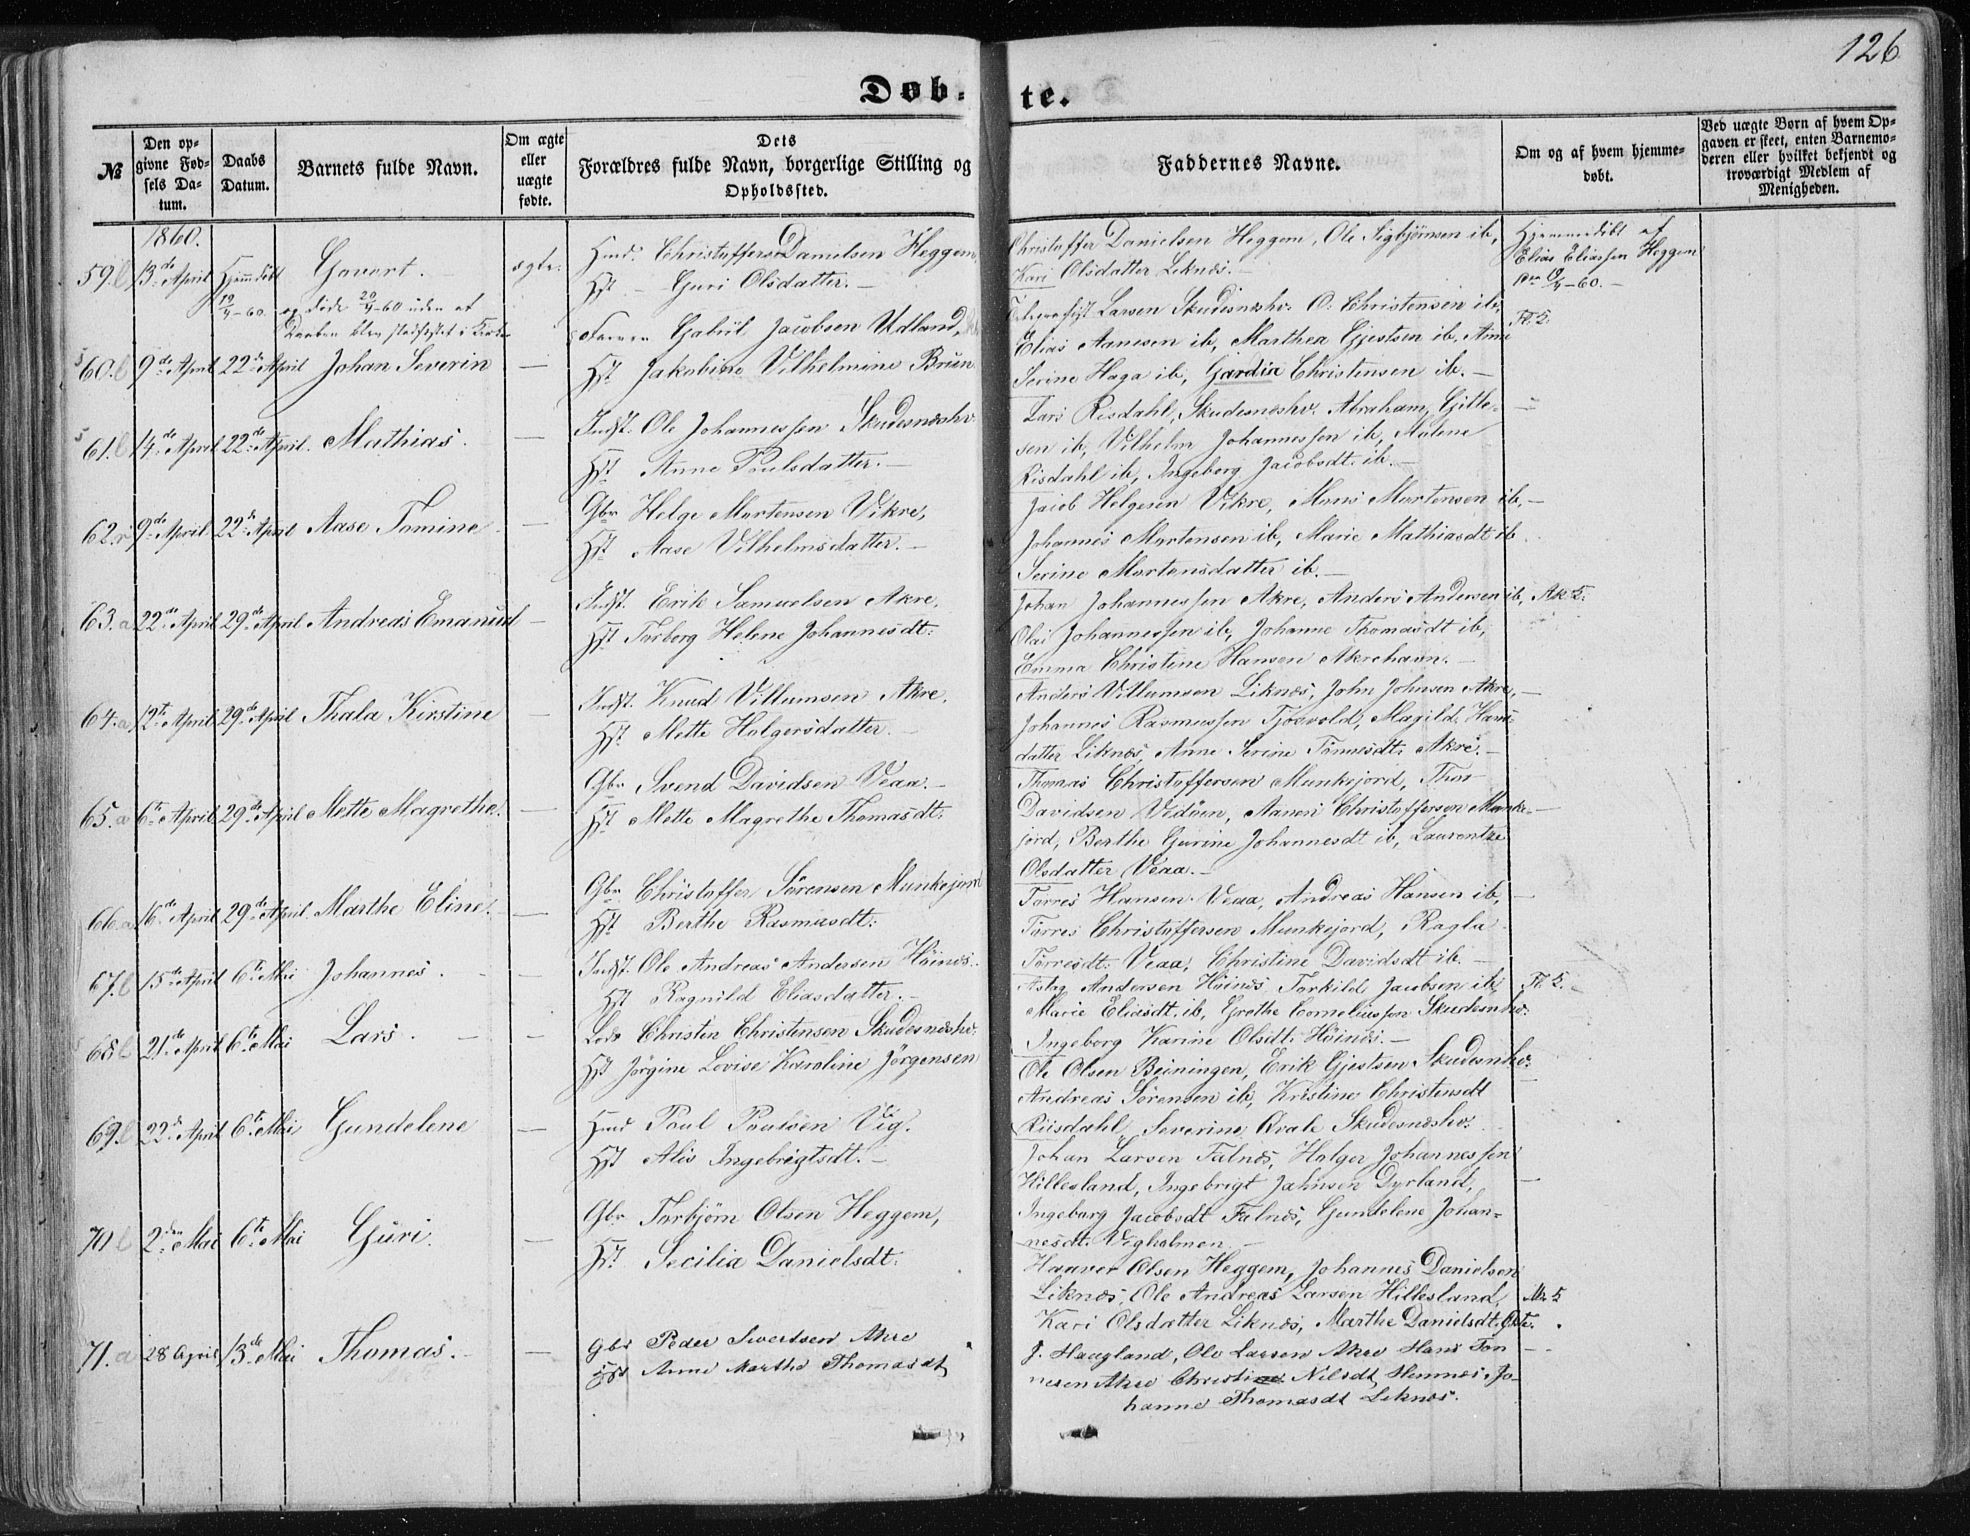 126
Døb-
te.
№
Den op-
givne Fød-
sels Da-
tum.
Daabs
Datum.
Barnets fulde Navn.
Om ægte
eller
uægte
fødte.
Dets
Forældres fulde Navn, borgerlige Stilling og
Opholdssted.
Faddernes Navne.
Om og af hvem hjemme-
døbt.
Ved uægte Børn af hvem Op-
gaven er skeet, enten Barnemo-
deren eller hvilket bekjendt og
troværdigt Medlem af
Menigheden.
1860.
59. 13de April Hjemdøbt Govert. ægte. Hmd. Christoffer Danielsen Heggem,
19/4-60. og døde 20/4-60 uden at
Daaben blev stadfæstet i Kirke
Hst Guri Olsdatter.
Christoffer Danielsen Heggem, Ole Sigbjørnsen ib,
Kari Olsdatter Liknes.
Hjemmedøbt af
Elias Eliassen Heggem
60. 9de April 22de April Johan Severin — Gabriel Jacobsen Udland,
Hst Jakobine Vilhelmine Bruun
Larsen Skudesneshv. O. Christensen ib,
Elias Aanesen ib, Marthea Gjestsen ib, Anne
Serine Haga ib, Gardia Christensen ib.
61. 14de April 22de April. Mathias. — Indst. Ole Johannessen Skudesneshv.
Hst Anne Poulsdatter.
Lars Risdahl, Skudesneshv. Abraham Gitle-
sen ib, Vilhelm Johannessen ib, Malene
Risdahl ib, Ingeborg Jacobsdt. ib.
62. 9de April 22de April Aase Tomine — Gbr Helge Mortensen Vikre,
Hst Aase Vilhelmsdatter.
Jacob Helgesen Vikre, Mons Mortensen ib,
Johannes Mortensen ib, Marie Mathiasdt ib
Serine Mortensdatter ib.
63. a 22de April 29de April Andreas Emanuel — Indst. Erik Samuelsen Akre.
Hst Torborg Helene Johannesdt:
Johan Johannessen Akre, Anders Andersen ib,
Olai Johannessen ib, Johanne Thomasdt ib,
Emma Christine Hansen Akrehavn.
64. a 12te April 29de April Thala Kirstine — Indst. Knud Villumsen Akre.
Hst. Mette Holgersdatter.
Anders Villumsen Liknes, John Johnsen Akre,
Johannes Rasmussen Tjøsvold, Magild Hans-
datter Liknes, Anne Serine Tønnesdt. Akre.
65. a 6te April 29de April Mette Magrethe. — Gbr Svend Davidsen Veaa.
Hst Mette Magrethe Thomasdt.
Thomas Christoffersen Munkejord, Thor
Davidsen Vedøen, Aanen Christoffersen Munke-
jord, Berthe Gurine Johannesdt ib, Laurentze
Olsdatter Veaa.
66. a 16de April 29de April. Marthe Eline. — Gbr Christoffer Sørensen Munkejord
Hst Berthe Rasmusdt:
Torres Hansen Veaa, Andreas Hansen ib,
Tørres Christoffersen Munkejord, Ragla
Tørresdt. Veaa, Christine Davidsdt ib.
67. 15de April 6te Mai Johannes. — Indst. Ole Andreas Andersen Høines.
Hst Ragnild Eliasdatter.
Aslag Andersen Høines Torkild Jacobsen ib,
Marie Eliasdt. ib, Grethe Corneliussen Skudesnhv.
Ingeborg Karine Olsdt. Høines.
68. 21de April 6te Mai Lars. — Lods Christen Christensen Skudesneshv.
Hst Jörgine Lovise Karoline Jörgensen
Ole Olsen Beiningen, Erik Gjestsen Skudesnhv.
Andreas Sørensen ib, Kristine Christensdt
Riisdahl, Severine Qvale Skudesneshv.
69. 22de April 6te Mai Gundelene — Hmd Poul Poulsen Vig.
Hst Alis Ingebrigtsdt.
Johan Larsen Falnes, Holger Johannessen
Hillesland, Ingebrigt Johnsen Dyrland,
Ingeborg Jacobsdt Falnes, Gundelene Johan-
nesdt. Vigholmen.
70. 2den Mai 6te Mai Guri. — Gbr Torbjørn Olsen Heggem,
Hst. Secilia Danielsdt.
Haaver Olsen Heggem, Johannes Danielsen
Liknes, Ole Andreas Larsen Hillesland,
Kari Olsdatter Liknes, Marthe Danielsdt.
71. a 28 April 13de Mai Thomas. — Gbr Peder Sivertsen Akre
Hst Anne Marthe Thomasdt
J. Haugland, Ole Larsen Akre Hans Ton
nesen Akre Christine Nilsdt Hemnes, Jo-
hanne Thomasdt Liknes.